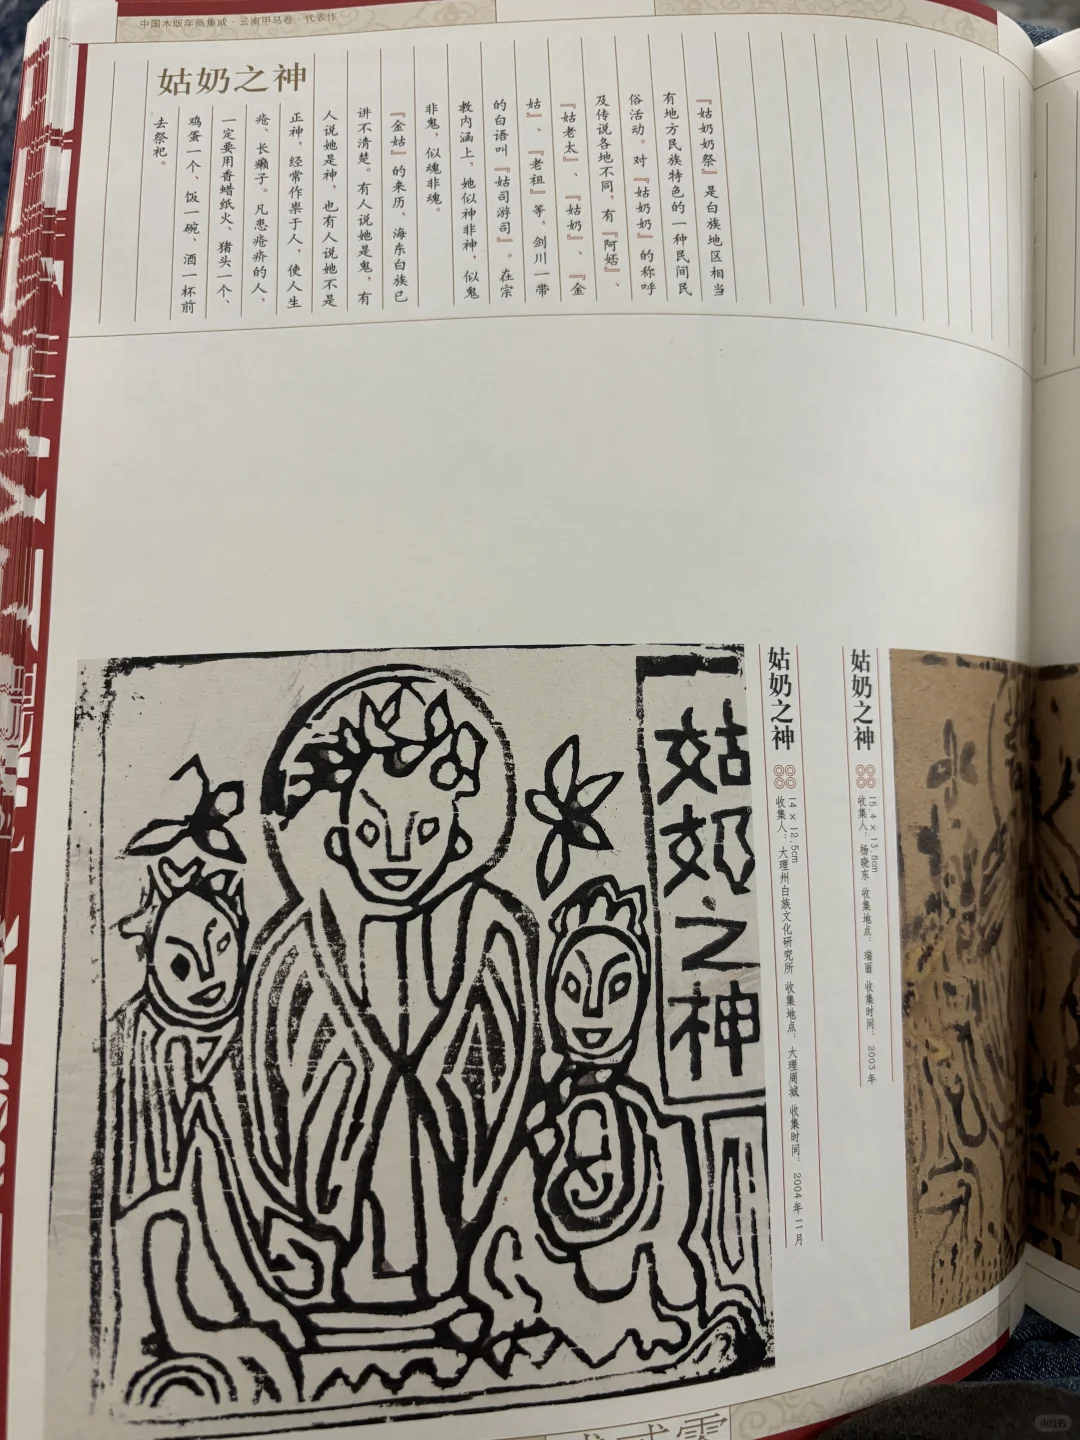 中国木版年画集成·云南甲马卷·代表作
姑奶之神
『姑奶奶祭』是白族地区相当
有地方民族特色的一种民间民
俗活动。对『姑奶奶』的称呼
及传说各地不同，有『阿』、
『姑老太』、『姑奶』、『金
姑』、『老祖』等，剑川一带
的白语叫『姑司游司』。在宗
教内涵上，她似神非神，似鬼
非鬼，似魂非魂。
『金姑』的来历，海东白族已
讲不清楚。有人说她是鬼，有
人说她是神，也有人说她不是
正神，经常作祟于人，使人生
疮、长癞子。凡患疮疥的人，
一定要用香蜡纸火、猪头一个、
鸡蛋一个、饭一碗、酒一杯前
去祭祀。
姑奶之神
15.4×13.8cm
收集人：杨晓东 收集地点：瑞丽 收集时间：2003年
姑奶之神
14×12.5cm
收集人：大理州白族文化研究所 收集地点：大理周城 收集时间：2004年11月
姑奶之神
零
小红书